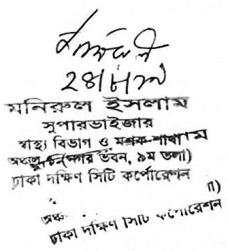 ২৪।৮।২০
মনিরুল ইসলাম
সুপারভাইজার
স্বাস্থ্য বিভাগ ও মশক শাখা
(নগর ভবন, ৯ম তলা)
ঢাকা দক্ষিণ সিটি কর্পোরেশন
ঢাকা দক্ষিণ সিটি কর্পোরেশন